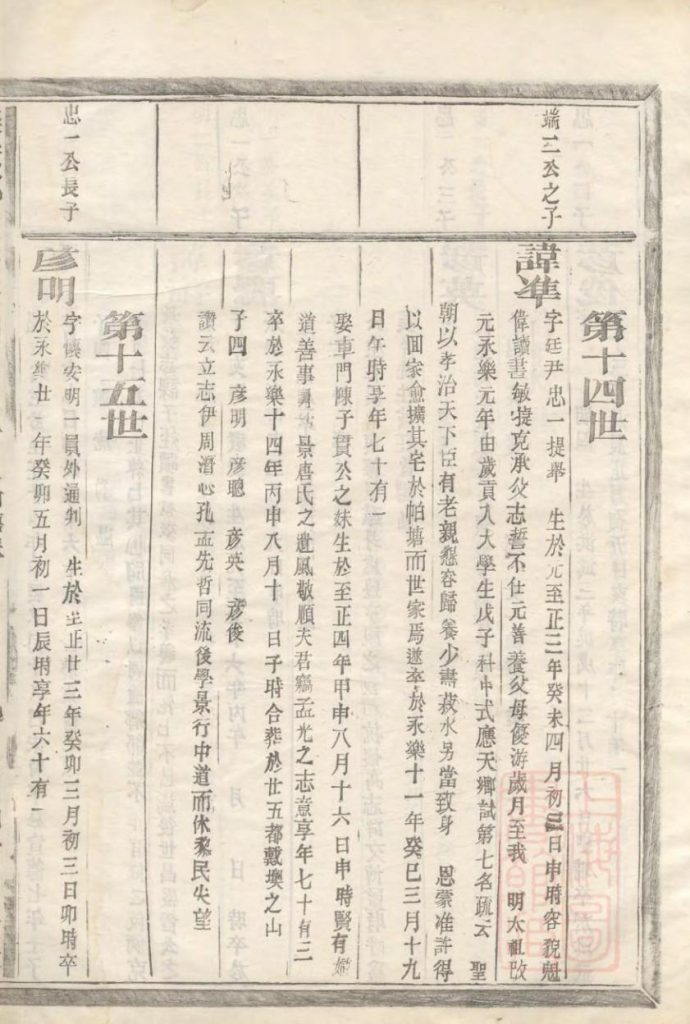 第十四世
端二公之子
諱準
字廷尹忠一提舉 生於元至正三年癸未四月初三日申時容貌魁
偉讀書敏捷克承父志誓不仕元善養父母優游歲月至我 明太祖改
元永樂元年由歲貢入大學生戊子科中式應天鄉試第七名疏云 聖
朝以孝治天下臣有老親懇容歸養少盡菽水另當致身 恩蒙准許得
以回家愈擴其宅於帕墻而世家焉遂卒於永樂十一年癸巳三月十九
日午時享年七十有一
娶車門陳子貫公之妹生於至正四年甲申八月十六日申時賢有
道善事 景唐氏之遺風敬順夫君竊孟光之志意享年七十有三
卒於永樂十四年丙申八月十 日子時合葬於廿五都戴墺之山
子四 彥明 彥聰 彥英 彥俊
讚云立志伊周潛心孔孟先哲同流後學景行中道而休黎民失望
第十五世
忠一公長子
彥明
字懷安明一員外通判 生於至正廿三年癸卯三月初三日卯時卒
於永樂廿一年癸卯五月初一日辰時享年六十有一